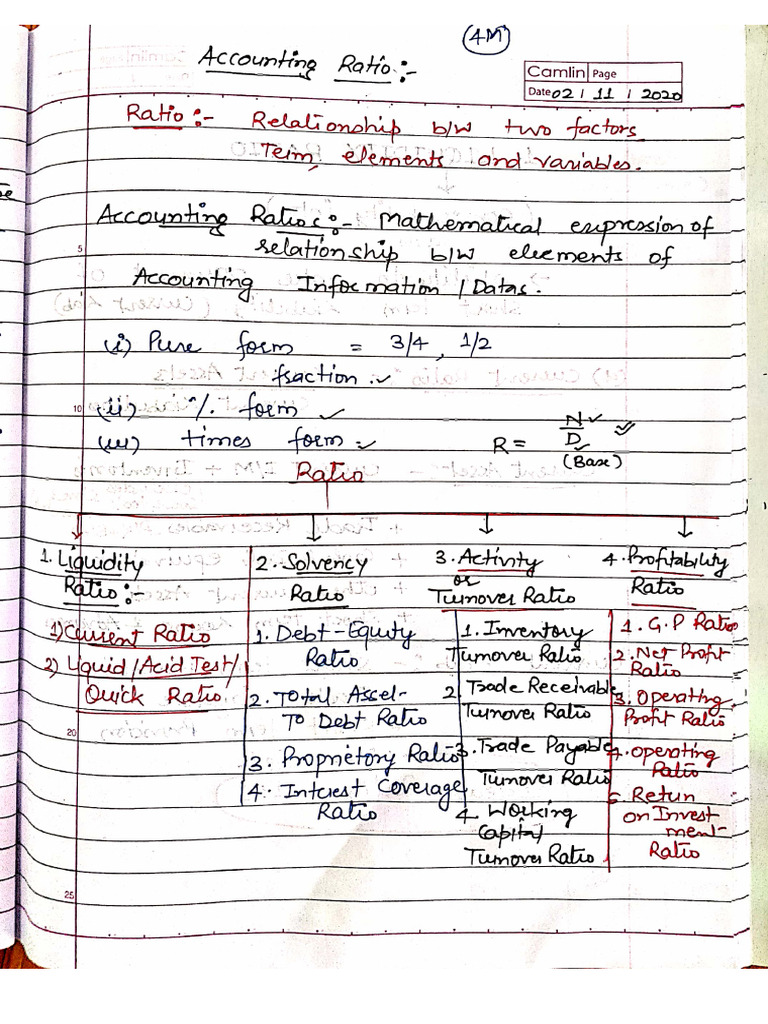 (4M)
Accounting Ratio:-
Camlin Page
Date 02 / 11 / 2020
Ratio:- Relationship b/w two factors
Term, elements and variables.
Accounting Ratios:- Mathematical expression of
relationship b/w elements of
Accounting Information / Datas.
5
(i) Pure form = 3/4, 1/2
fraction.
10
(ii) % form
(iii) times form
R = N/D
(Base)
Ratio
1. Liquidity
Ratio:-
1) Current Ratio
2) Liquid/Acid Test/
Quick Ratio
2. Solvency
Ratio
1. Debt-Equity
Ratio
2. Total Asset
To Debt Ratio
3. Proprietory Ratio
4. Interest Coverage
Ratio
3. Activity
or
Turnover Ratio
1. Inventory
Turnover Ratio
2. Trade Receivable
Turnover Ratio
3. Trade Payable
Turnover Ratio
4. Working
Capital
Turnover Ratio
4. Profitability
Ratio
1. G.P Ratio
2. Net Profit
Ratio
3. Operating
Profit Ratio
4. Operating
Ratio
5. Retun
on Invest
ment-
Ratio
20
25